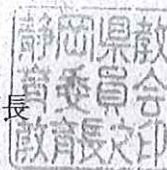 静岡県教
育委員会
教育長之印
長